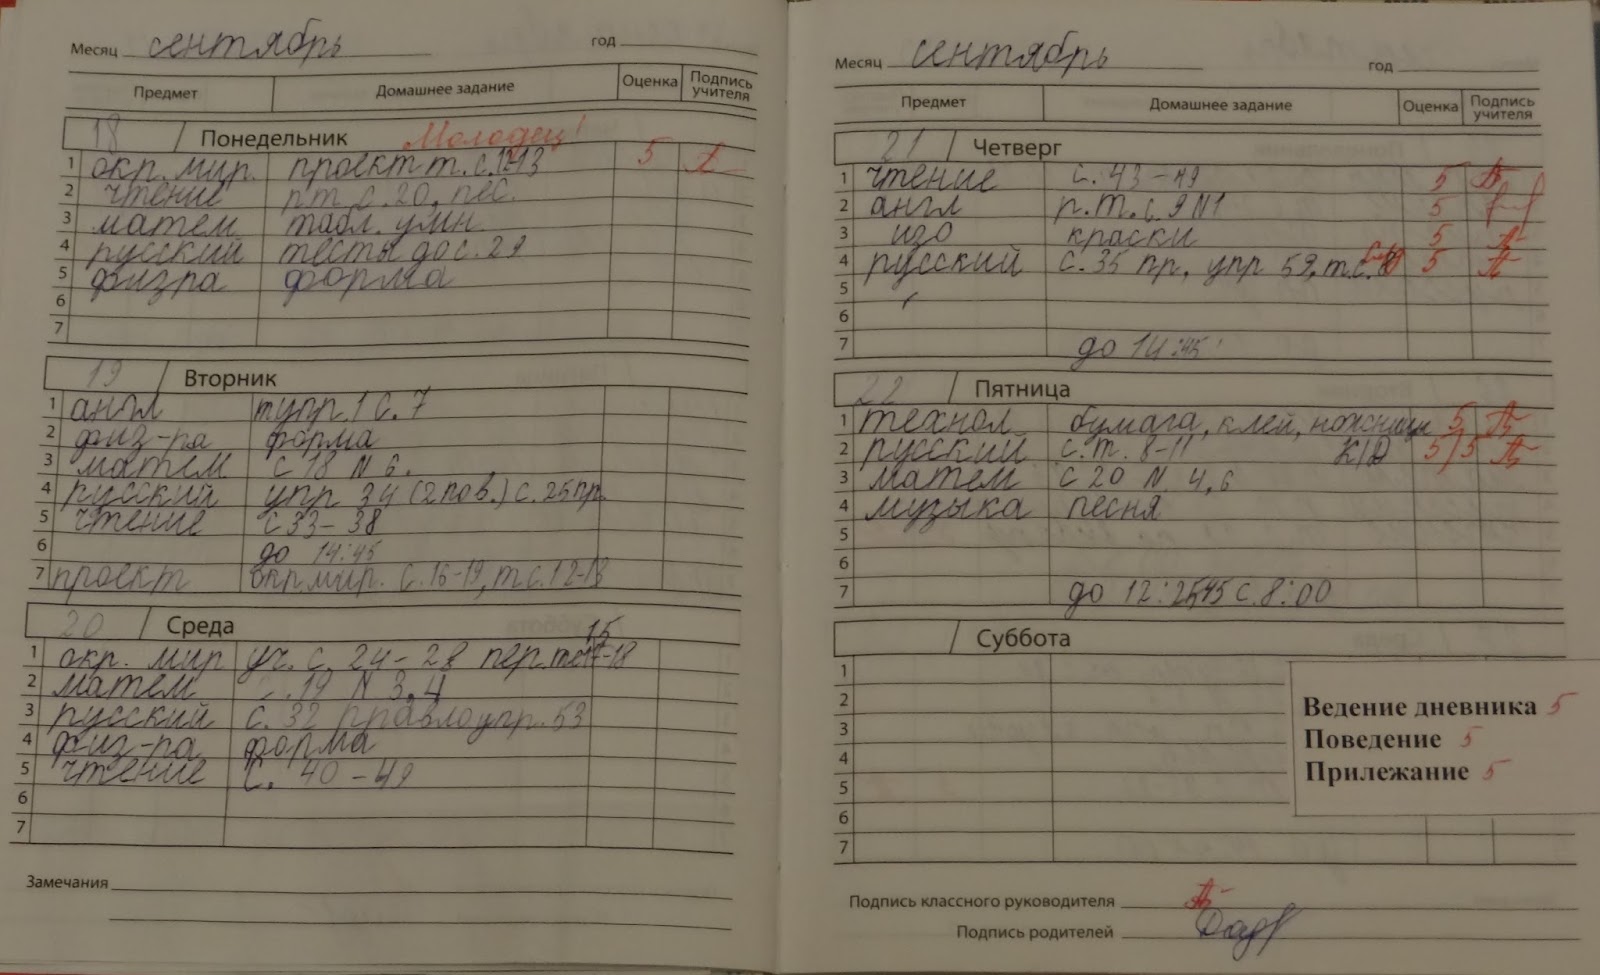 Месяц сентябрь год
Предмет Домашнее задание Оценка Подпись учителя
18 Понедельник Молодец!
1 окр. мир. проект т. с. 12-13 5
2 чтение р.т. с. 20, пес.
3 матем табл. умн.
4 русский тесты до с. 29
5 физра форма
6
7
19 Вторник
1 англ упр. 1 с. 7
2 физ-ра форма
3 матем с 18 N 6.
4 русский упр 34 (2 пов.) с. 25 пр.
5 чтение с 33-38
6 до 14:45
7 проект окр. мир. с. 16-19, т с. 12-13
20 Среда
1 окр. мир уч. с. 24-28 пер. 15 -18
2 матем с. 19 N 3, 4
3 русский с. 32 правло упр. 53
4 физ-ра форма
5 чтение с. 40-49
6
7
Замечания
Месяц сентябрь год
Предмет Домашнее задание Оценка Подпись учителя
21 Четверг
1 чтение с. 43-49 5
2 англ р.т. с. 9 N1 5
3 изо краски 5
4 русский с. 35 пр, упр 59, т.с. 5
5
6
7 до 14:45
22 Пятница
1 технол бумага, клей, ножницы 5
2 русский с. т. 8-11 К/Д 5/5
3 матем с 20 N 4, 6
4 музыка песня
5
6
7 до 12: с. 8:00
Суббота
1
2
3
4
5
6
7
Ведение дневника 5
Поведение 5
Прилежание 5
Подпись классного руководителя
Подпись родителей